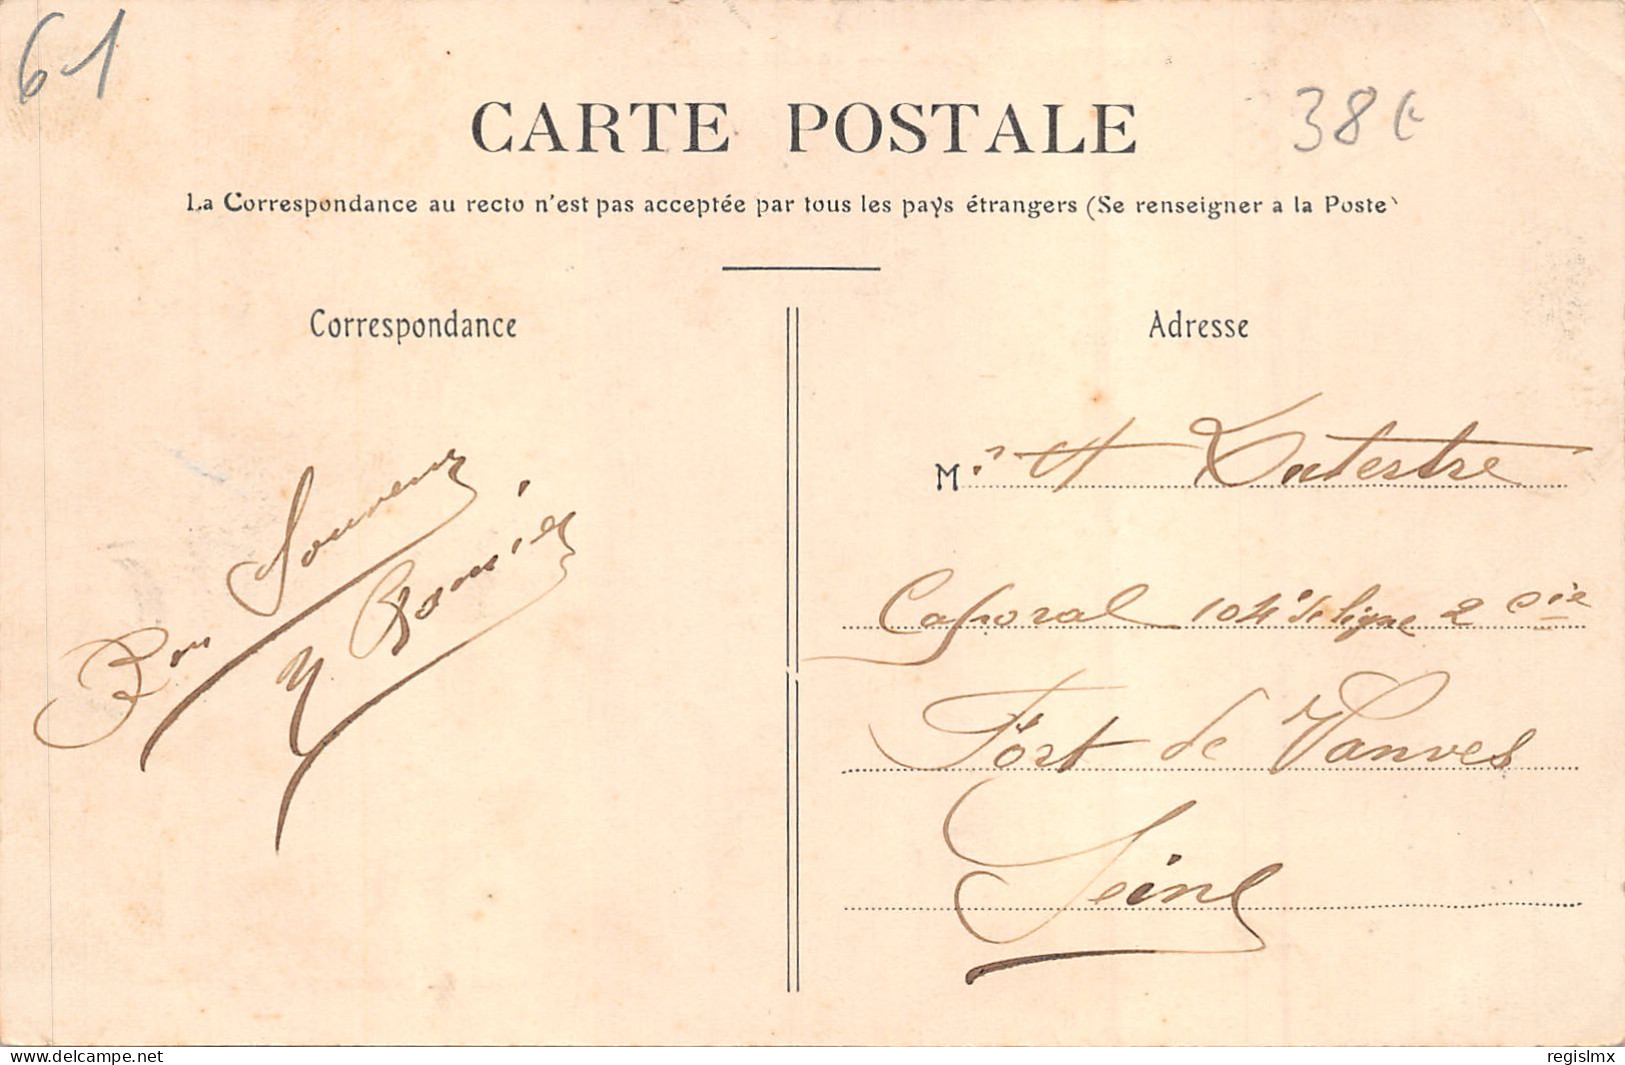 61
38€
CARTE POSTALE
La Correspondance au recto n'est pas acceptée par tous les pays étrangers (Se renseigner a la Poste)
Correspondance
Bon Souvenir
Adresse
Mr H Dutertre
Caporal 104e de ligne 2 Cie
Fort de Vanves
Seine
delcampe.net
regislmx